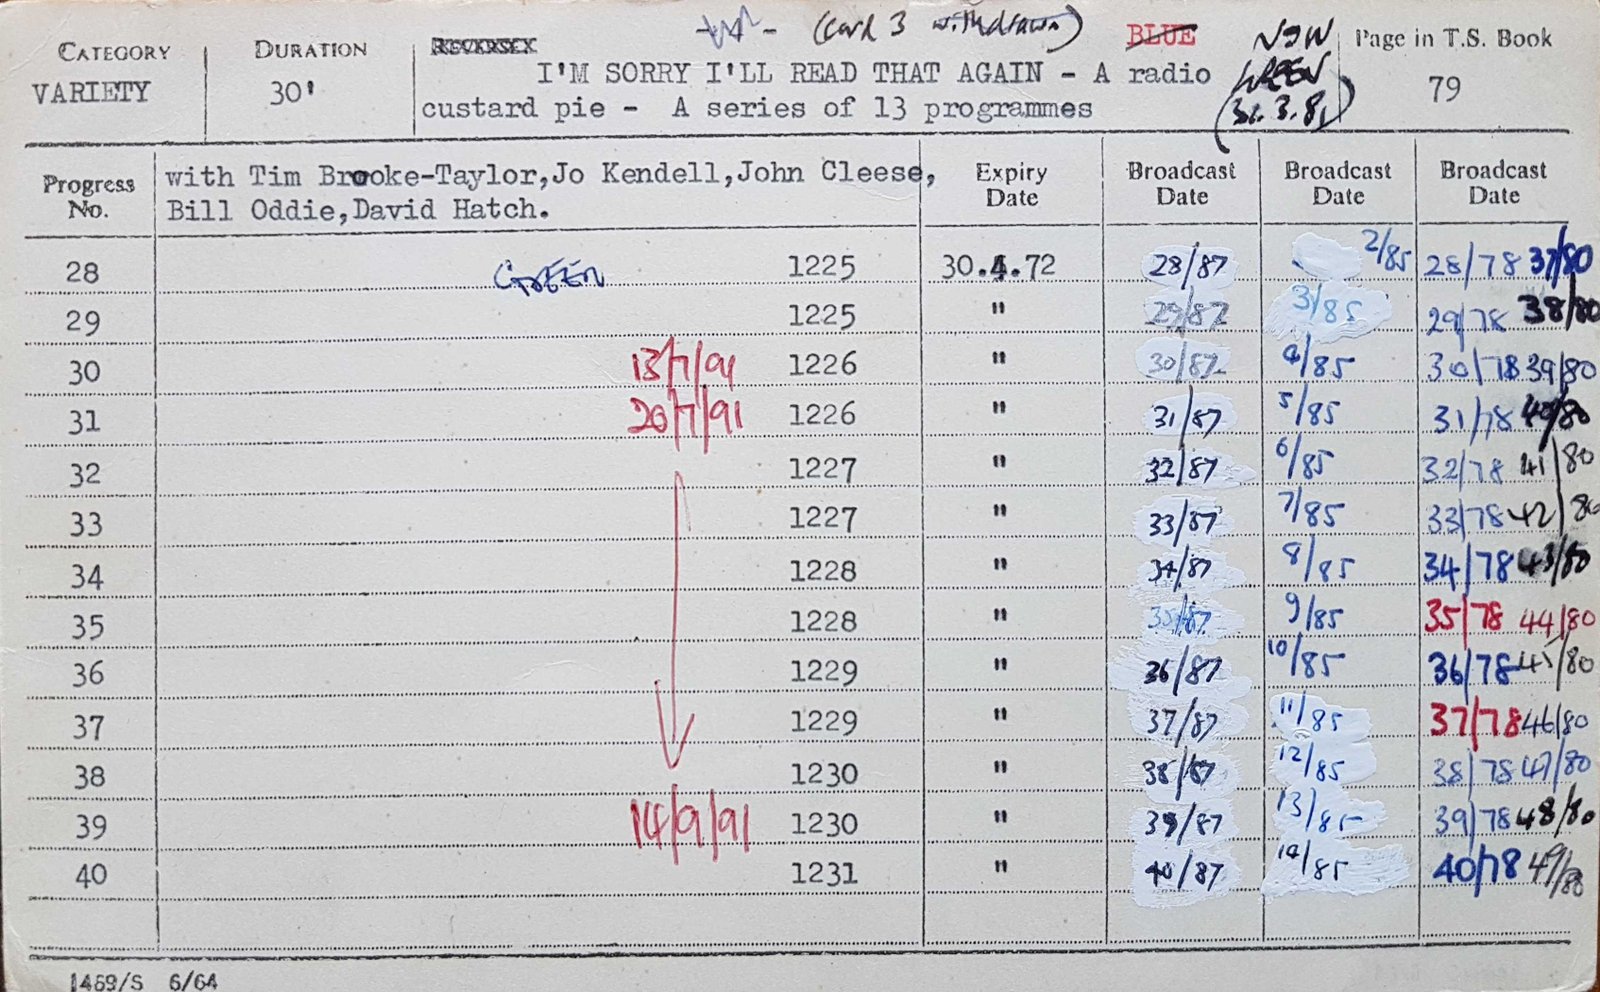 (Card 3 withdrawn) BLUE NOW
CATEGORY DURATION REVERSEX GREEN Page in T.S. Book
VARIETY 30' I'M SORRY I'LL READ THAT AGAIN - A radio (31.3.81) 79
custard pie - A series of 13 programmes
Progress No. with Tim Brooke-Taylor,Jo Kendell,John Cleese, Expiry Date Broadcast Date Broadcast Date Broadcast Date
Bill Oddie,David Hatch.
28 GREEN 1225 30.4.72 28/87 2/85 28/78 37/80
29 1225 " 29/87 3/85 29/78 38/80
30 13/7/91 1226 " 30/87 4/85 30/78 39/80
31 20/7/91 1226 " 31/87 5/85 31/78 40/80
32 1227 " 32/87 6/85 32/78 41/80
33 1227 " 33/87 7/85 33/78 42/80
34 1228 " 34/87 8/85 34/78 43/80
35 1228 " 35/87 9/85 35/78 44/80
36 1229 " 36/87 10/85 36/78 45/80
37 1229 " 37/87 11/85 37/78 46/80
38 1230 " 38/87 12/85 38/78 47/80
39 14/9/91 1230 " 39/87 13/85 39/78 48/80
40 1231 " 40/87 14/85 40/78 49/80
1469/S 6/64